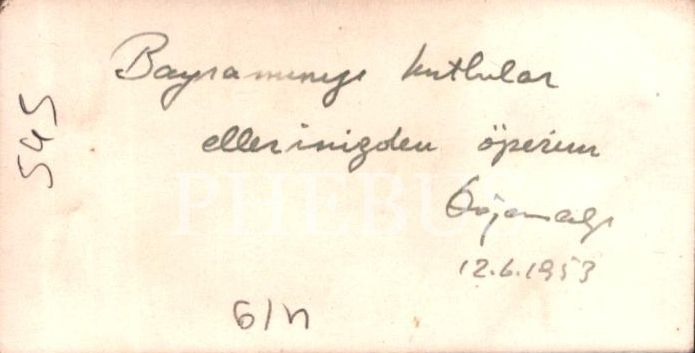 Bayramınızı kutlular
ellerinizden öperim
12.6.1953
545
6/n
PHEBUS